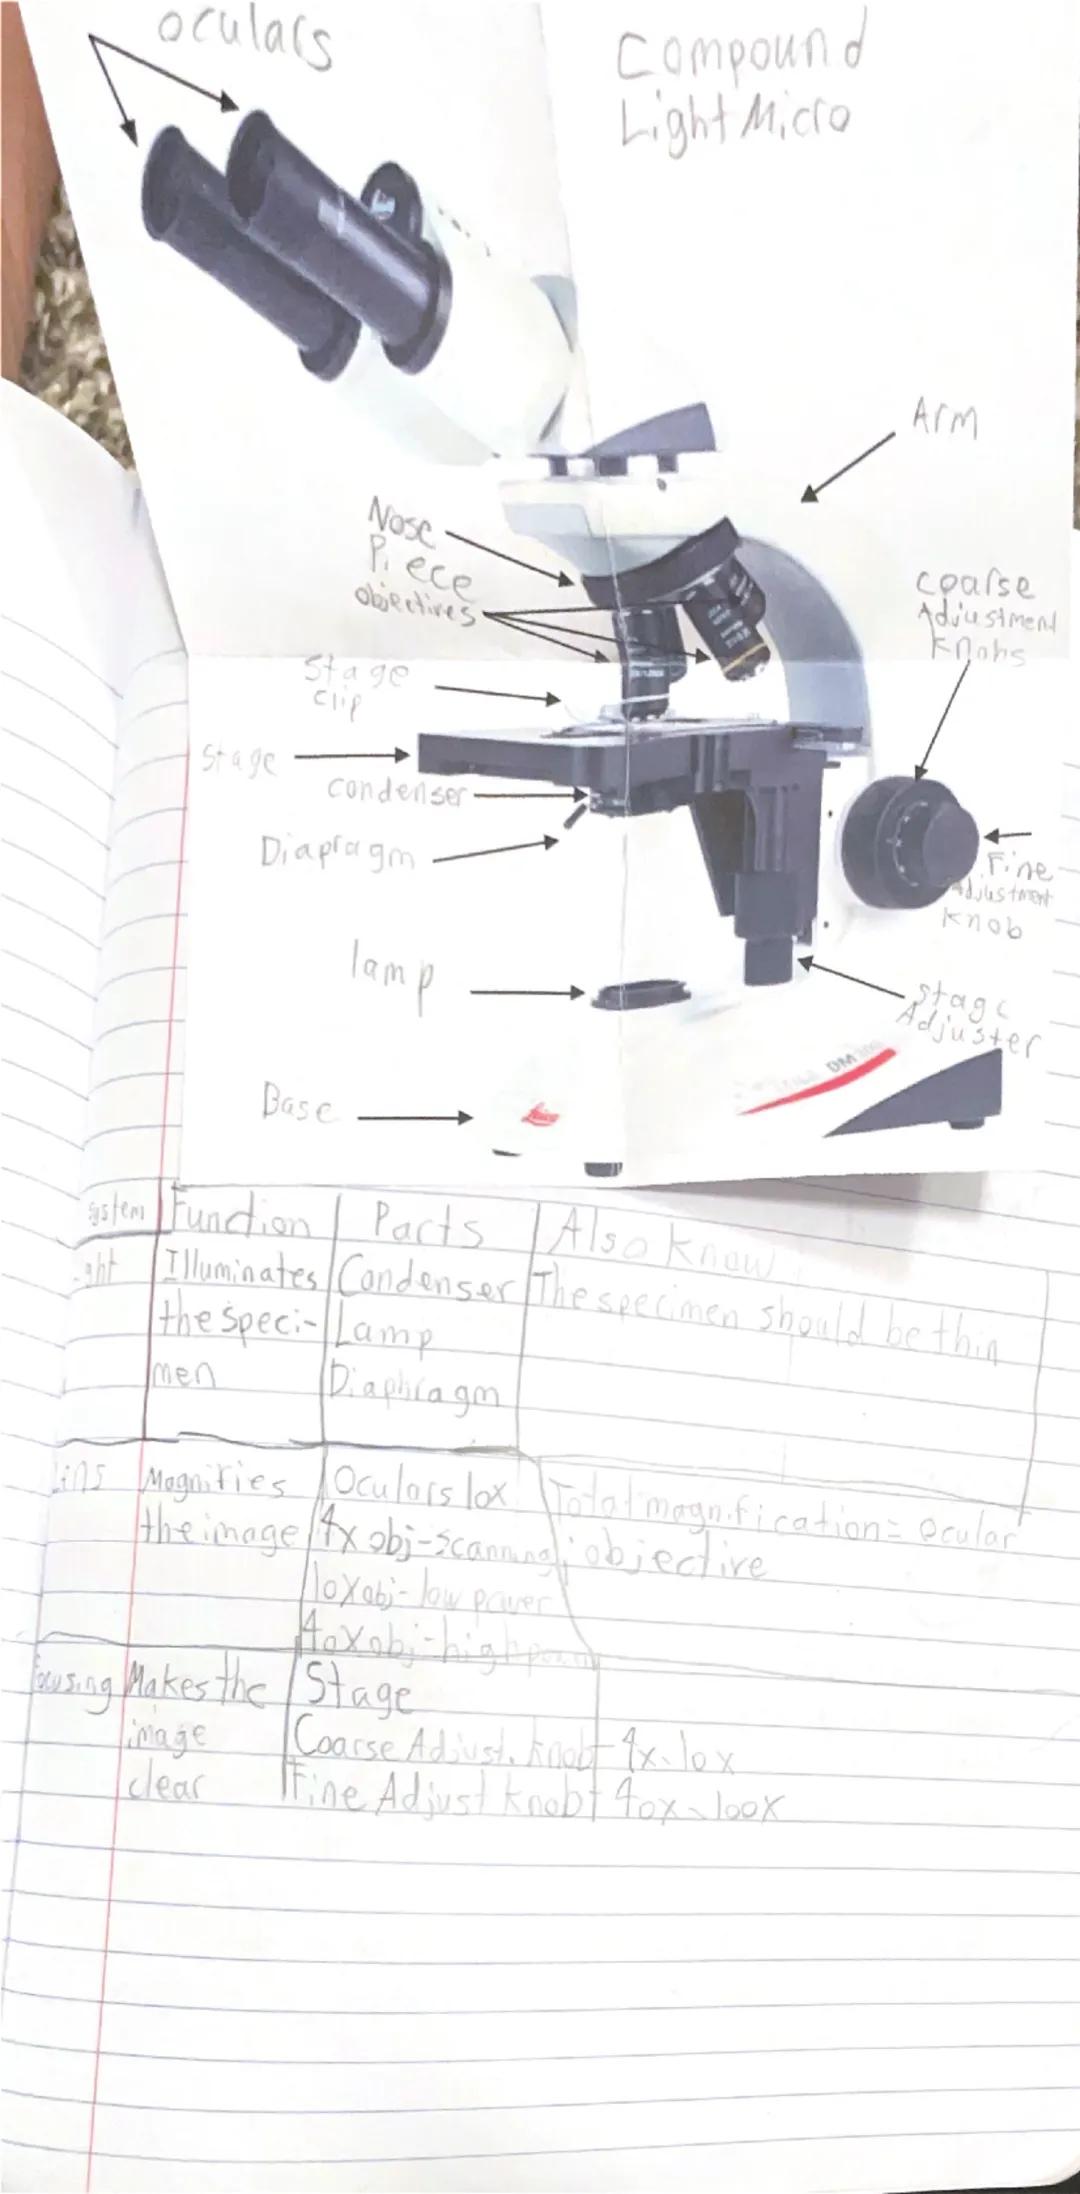 oculars
Compound
Light Micro
Arm
Nose
Piece
objectives
coarse
Adjustment
Knobs
Stage
clip
Stage
condenser
Diapragm
Fine
Adjustment
Knob
lamp
Stage
Adjuster
DM
Base
Leica
System Function Parts Also Know
Illuminates Condenser The specimen should be thin
the speci- Lamp
men Diaphragm
Magnifies Oculars 10x Total magnification = Ocular
the image 4x obj-scanning objective
10x obj- low power
40x obj-high
Focusing Makes the Stage
image Coarse Adjust. knob - 4x, 10x
clear Fine Adjust knob - 40x, 100x